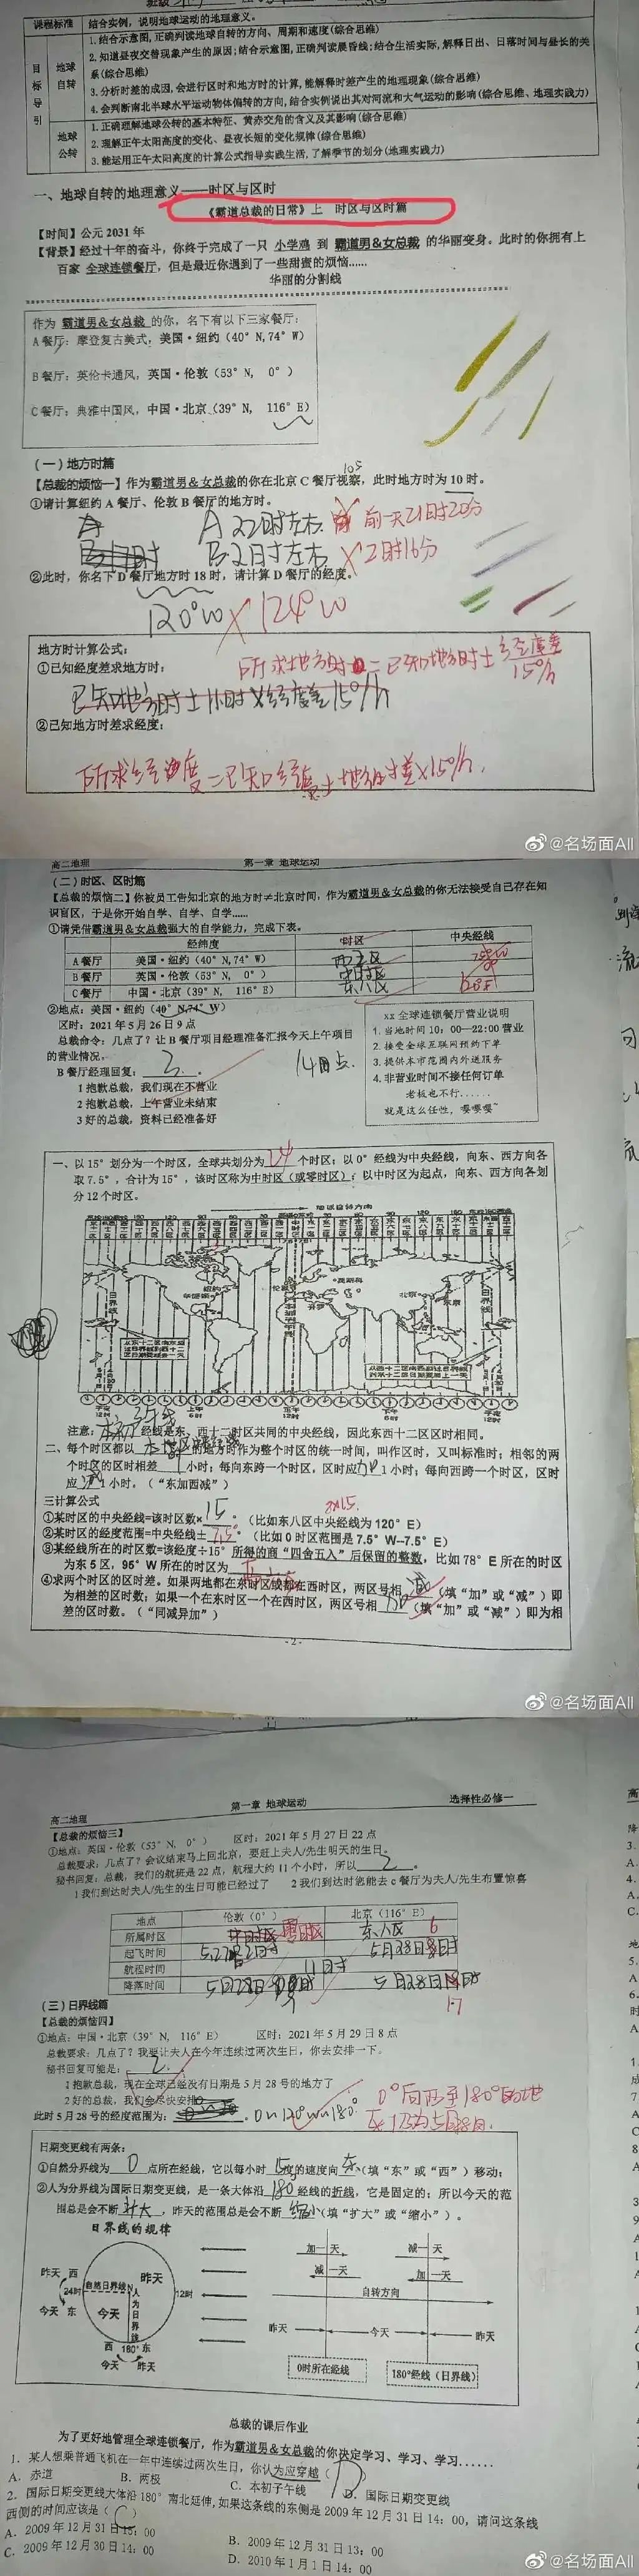 课程标准 结合实例，说明地球运动的地理意义。
目标导引
地球自转
1.结合示意图,正确判读地球自转的方向、周期和速度(综合思维)
2.知道昼夜交替现象产生的原因;结合示意图,正确判读晨昏线;结合生活实际,解释日出、日落时间与昼长的关系(综合思维)
3.分析时差的成因,会进行区时和地方时的计算,能解释时差产生的地理现象(综合思维)
4.会判断南北半球水平运动物体偏转的方向,结合实例说出其对河流和大气运动的影响(综合思维、地理实践力)
地球公转
1.正确理解地球公转的基本特征、黄赤交角的含义及其影响(综合思维)
2.理解正午太阳高度的变化、昼夜长短的变化规律(综合思维)
3.能运用正午太阳高度的计算公式指导实践生活,了解季节的划分(地理实践力)
一、地球自转的地理意义——时区与区时
《霸道总裁的日常》上 时区与区时篇
【时间】公元 2031 年
【背景】经过十年的奋斗，你终于完成了一只 小学鸡 到 霸道男&女总裁 的华丽变身。此时的你拥有上
百家 全球连锁餐厅，但是最近你遇到了一些甜蜜的烦恼......
华丽的分割线
作为 霸道男&女总裁 的你，名下有以下三家餐厅：
A 餐厅：摩登复古美式，美国·纽约（40°N,74°W）
B 餐厅：英伦卡通风，英国·伦敦（53°N， 0°）
C 餐厅：典雅中国风，中国·北京（39°N， 116°E）
（一）地方时篇
【总裁的烦恼一】作为霸道男&女总裁的你在北京 C 餐厅视察，此时地方时为 10 时。
①请计算纽约 A 餐厅、伦敦 B 餐厅的地方时。
A 22时左右 前一天21时20分
B 2时左右 2时16分
②此时，你名下 D 餐厅地方时 18 时，请计算 D 餐厅的经度。
120°W 124°W
地方时计算公式：
①已知经度差求地方时：
所求地方时=已知地方时±经度差
15°/h
已知地方时±1小时×经度差15°/h
②已知地方时差求经度：
所求经度=已知经度±地方时差×15°/h.
@名场面All
高二地理 第一章 地球运动
（二）时区、区时篇
【总裁的烦恼二】你被员工告知北京的地方时≠北京时间，作为霸道男&女总裁的你无法接受自己存在知
识盲区，于是你开始自学、自学、自学......
①请凭借霸道男&女总裁强大的自学能力，完成下表。
经纬度 时区 中央经线
A 餐厅 美国·纽约（40°N,74°W） 西五区 75°W
B 餐厅 英国·伦敦（53°N， 0°） 中时区
C 餐厅 中国·北京（39°N， 116°E） 东八区 120°E
②地点：美国·纽约（40°N,74°W）
区时：2021 年 5 月 26 日 9 点
总裁命令：几点了？让 B 餐厅项目经理准备汇报今天上午项目
的营业情况，
B 餐厅经理回复： 3 。 14点.
1 抱歉总裁，我们现在不营业
2 抱歉总裁，上午营业未结束
3 好的总裁，资料已经准备好
xx 全球连锁餐厅营业说明
1. 当地时间 10：00—22:00 营业
2. 接受全球互联网预约下单
3. 提供本市范围内外送服务
4. 非营业时间不接任何订单
老板也不行......
就是这么任性，嘤嘤嘤~
一、以 15°划分为一个时区，全球共划分为 24 个时区；以 0°经线为中央经线，向东、西方向各
取 7.5°，合计为 15°，该时区称为中时区（或零时区）；以中时区为起点，向东、西方向各划
分 12 个时区。
地球自转方向
日界线
纽约
伦敦
北京
东京
注意： 经线是东、西十二时区共同的中央经线，因此东西十二区区时相同。
二、每个时区都以 的地方时作为整个时区的统一时间，叫作区时，又叫标准时；相邻的两
个时区的区时相差 1 小时；每向东跨一个时区，区时应 加 1 小时；每向西跨一个时区，区时
应 减 1 小时。（“东加西减”）
三计算公式
①某时区的中央经线=该时区数× 15 °。（比如东八区中央经线为 120°E） 8×15.
②某时区的经度范围=中央经线± 7.5° 。（比如 0 时区范围是 7.5°W--7.5°E）
③某经线所在的时区数=该经度÷15°所得的商“四舍五入”后保留的整数，比如 78°E 所在的时区
为东 5 区，95°W 所在的时区为
④求两个时区的区时差。如果两地都在东时区或都在西时区，两区号相 减 （填“加”或“减”）即
为相差的区时数；如果一个在东时区一个在西时区，两区号相 加 （填“加”或“减”）即为相
差的区时数。（“同减异加”）
- 2 -
@名场面All
高二地理 第一章 地球运动 选择性必修一
【总裁的烦恼三】
①地点：英国·伦敦（53°N， 0°） 区时：2021 年 5 月 27 日 22 点
总裁要求：几点了？会议结束马上回北京，要赶上夫人/先生明天的生日。
秘书回复：总裁，我们的航班是 22 点，航程大约 11 个小时，所以 2 。
1 我们到达时夫人/先生的生日可能已经过了 2 我们到达时您能去 c 餐厅为夫人/先生布置惊喜
地点 伦敦（0°） 北京（116°E）
所属时区 中时区 东八区
起飞时间 5月28日6时
航程时间 11时
降落时间 5月28日9时 5月28日 17
（三）日界线篇
【总裁的烦恼四】
①地点：中国·北京（39°N， 116°E） 区时：2021 年 5 月 29 日 8 点
总裁要求：几点了？我要让夫人在今年连续过两次生日，你去安排一下。
秘书回复可能是： 2 。
1 抱歉总裁，现在全球已经没有日期是 5 月 28 号的地方了
2 好的总裁，我们会尽快安排
此时 5 月 28 号的经度范围为： 。 0°向西至180°的地
日期变更线有两条：
①自然分界线为 0 点所在经线，它以每小时 15 度的速度向 东 （填“东”或“西”）移动；
②人为分界线为国际日期变更线，是一条大体沿 180 经线的折线，它是固定的；所以今天的范
围总是会不断 扩大 ，昨天的范围总是会不断 缩小 （填“扩大”或“缩小”）。
日界线的规律
昨天 西
24时
今天 东
自然日界线 N
昨天
今天
人为日界线
12时
西 180° 东
今天 昨天
加一天 减一天
减一天 加一天
自转方向
昨天 今天 昨天
0时所在经线 180°经线（日界线）
总裁的课后作业
为了更好地管理全球连锁餐厅，作为霸道男&女总裁的你决定学习、学习、学习......
1. 某人想乘普通飞机在一年中连续过两次生日，你认为应穿越（ D ）
A. 赤道 B. 两极 C. 本初子午线 D. 国际日期变更线
2. 国际日期变更线大体沿 180°南北延伸,如果这条线的东侧是 2009 年 12 月 31 日 14：00，请问这条线
西侧的时间应该是（ C ）
A. 2009 年 12 月 31 日 15：00 B. 2009 年 12 月 31 日 13：00
C. 2009 年 12 月 30 日 14：00 D. 2010 年 1 月 1 日 14：00
@名场面All